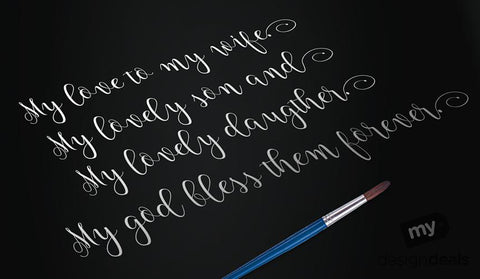 My love to my wife.
My lovely son and
My lovely daugther.
My god bless them forever
my
designdeals